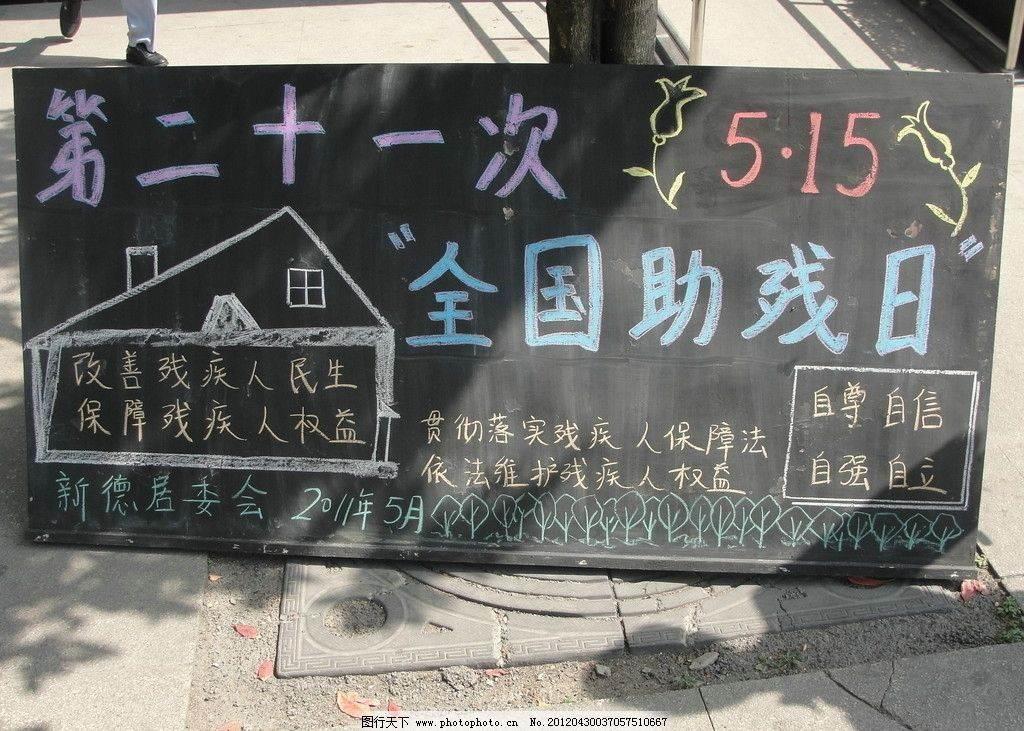 第二十一次 5·15
“全国助残日”
改善残疾人民生
保障残疾人权益
贯彻落实残疾人保障法
依法维护残疾人权益
自尊自信
自强自立
新德居委会 2011年5月
图行天下 www.photophoto.cn No.20120430037057510667